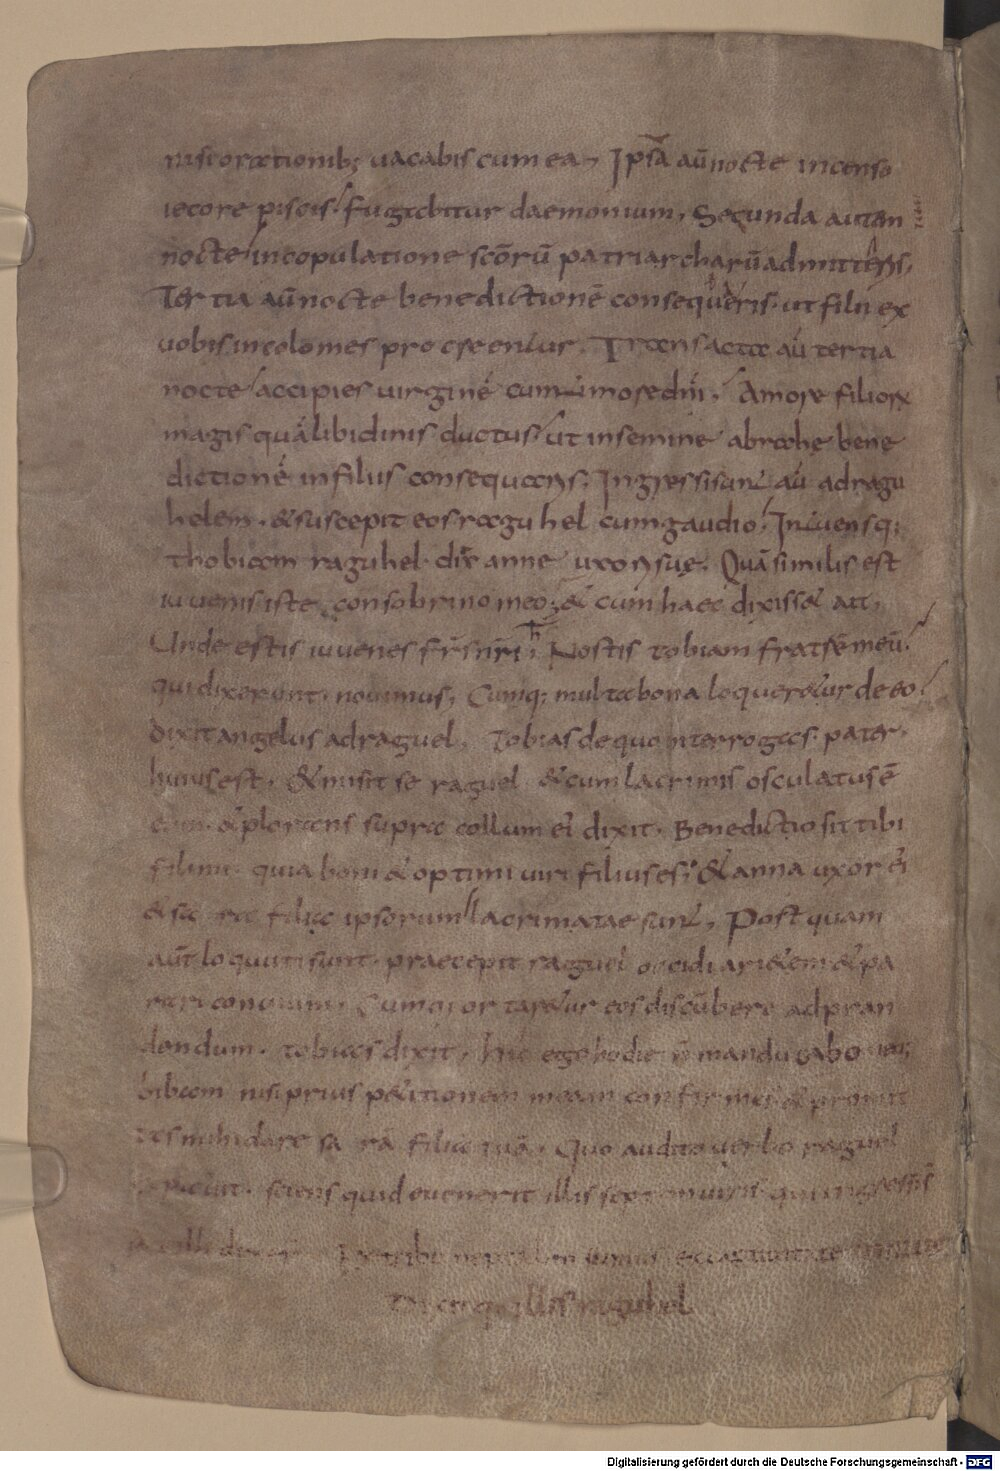 nisi orationib; uacabis cum ea, Ipsā aū nocte incenso
iecore piscis fugabitur daemonium, Secunda autem
nocte in copulatione scōrū patriarcharū admitteris,
Tertia aū nocte benedictionē consequeris. ut filii ex
uobis incolomes procreentur. Transacta aū tertia
nocte accipies uirginē cum timore dn̄i, Amore filiorꝝ
magis quā libidinis ductus ut in semine abrahę bene
dictionē in filiis consequaris; Ingressi sunt aū ad ragu
helem. & suscepit eos raguhel cum gaudio, Intuensq;
thobiam raguhel. dix anne uxori suę. Quā similis est
iuuenis iste consobrino meo; & cum haec dixiss& ait,
Unde estis iuuenes fr̄s nr̄i Nostis tobiam fratrē meū.
qui dixerunt. nouimus, Cumq; multa bona loquer&ur de eo
dixit angelus ad raguel, Tobias de quo interrogas. pater
huius est. & misit se raguel & cum lacrimis osculatus ē
eum. & plorans supra collum ei dixit. Benedictio sit tibi
fili mi. quia boni & optimi uiri filius es; & anna uxor ei
& sa ra filia ipsorum lacrimatae sunt, Postquam
aūt loquuti sunt. praecepit raguel occidi ari&em & pa
rari conuiuium. Cumq; ortar&ur eos discūbere ad pran
dendum. tobias dixit, hic ego hodie n̄ manducabo neq;
bibam nisi prius p&itionem meam confirmes & promit
tes mihi dare sa rā filiā tuā. Quo audito uerbo raguel
expauit. sciens quid euenerit illis septem uiris. qui ingressi s̄
Dixitq; illis raguhel